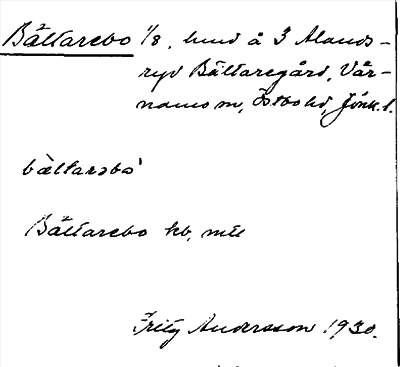 Bältarebo 1/8, lund å 3 Alands-
ryd Bältaregård, Vär-
namo sn, Östbo hd, Jönk. l.
bæ̀ltarəbo'
Bältarebo kb, mtl
Fritz Andersson 1930.